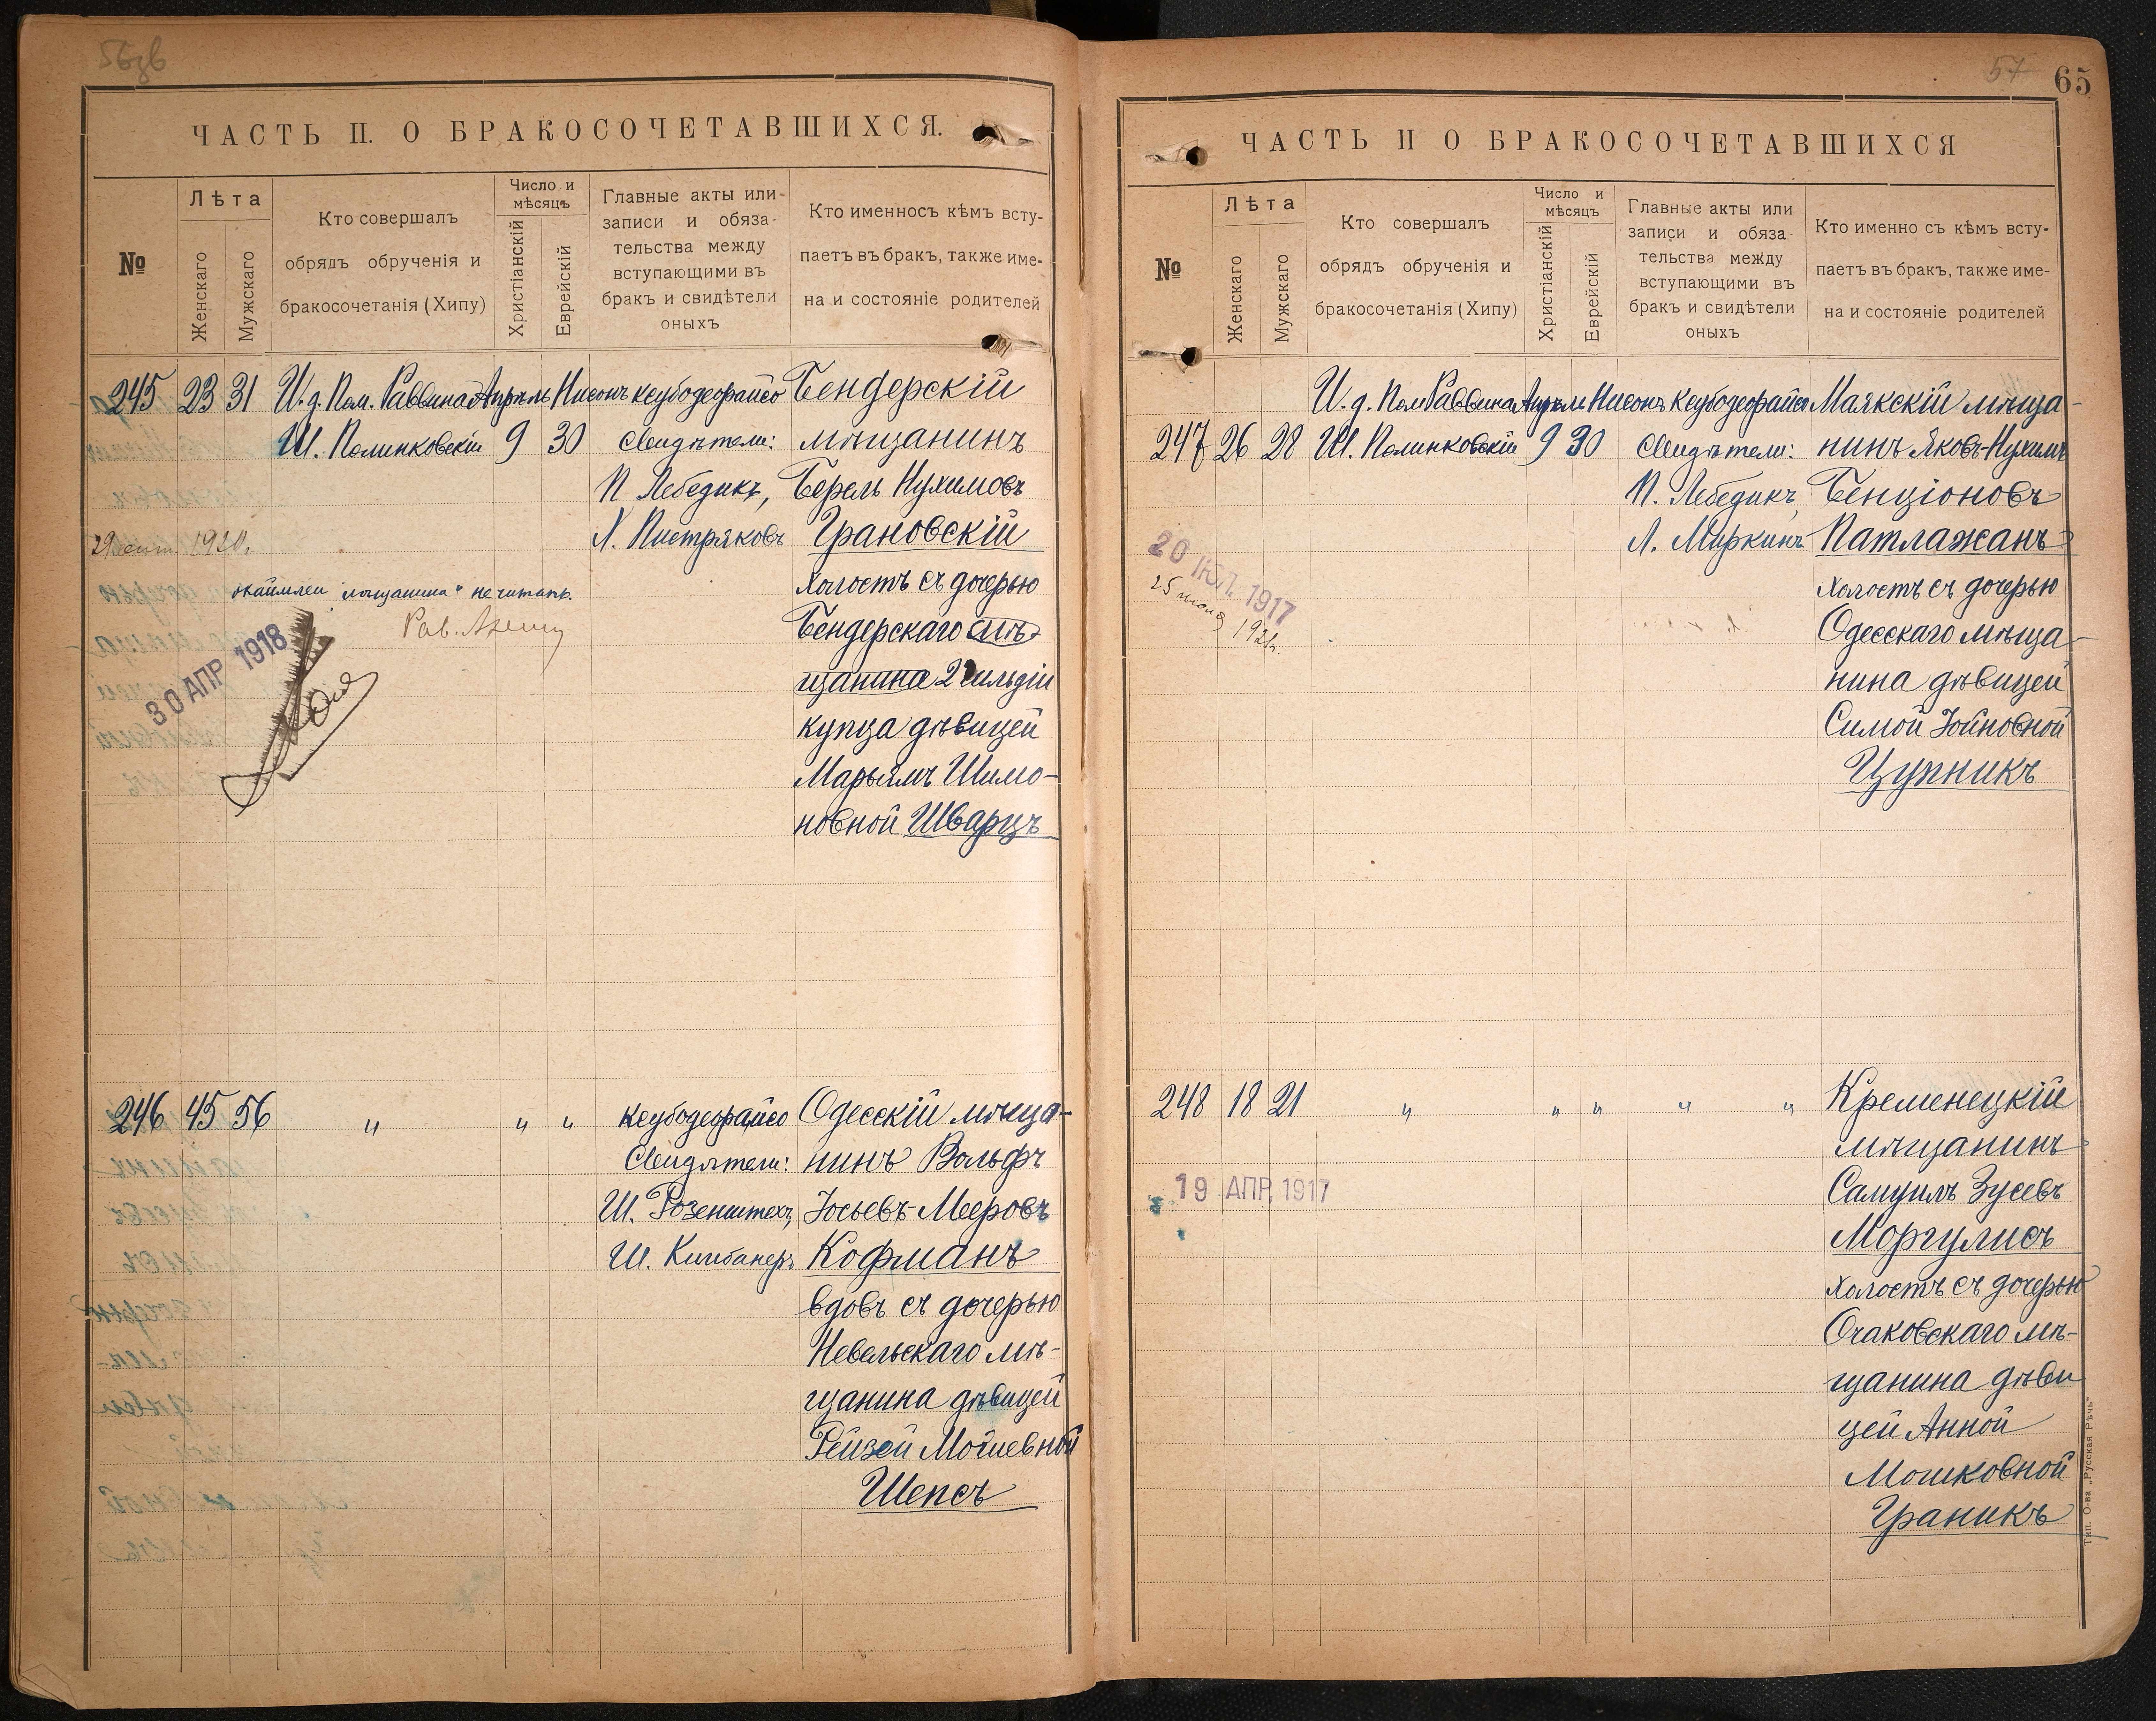 56об
ЧАСТЬ II. О БРАКОСОЧЕТАВШИХСЯ.
№
Лѣта
Женскаго
Мужскаго
Кто совершалъ
обрядъ обрученія и
бракосочетанія (Хипу)
Число и
мѣсяцъ
Христіанскій
Еврейскій
Главные акты или
записи и обяза-
тельства между
вступающими въ
бракъ и свидѣтели
оныхъ
Кто именносъ кѣмъ всту-
паетъ въ бракъ, также име-
на и состояніе родителей
245 23 31 И. д. Пом. Раввина Апрѣль Нисонъ Кеубодеорайсо Бендерскій
Ш. Полинковскій 9 30 Свидѣтели: мѣщанинъ
П Лебедикъ, Берель Нухимовъ
Х. Пистряковъ Грановскій
29 сент 1920.
холостъ съ дочерью
"мѣщанина" не читать.
Рав.
Бендерскаго мѣ-
30 АПР 1918
щанина 2 гильдіи
купца дѣвицей
Марьямъ Шимо-
новной Шварцъ
246 45 56 " " " Кеубодеорайсо Одесскій мѣща-
Свидѣтели: нинъ Вольфъ
Ш. Розенштехъ, Іосьевъ-Мееровъ
Ш. Кофманъ
вдовъ съ дочерью
Невельскаго мѣ-
щанина дѣвицей
Рейзей
Шепсъ
57
65
ЧАСТЬ II О БРАКОСОЧЕТАВШИХСЯ
№
Лѣта
Женскаго
Мужскаго
Кто совершалъ
обрядъ обрученія и
бракосочетанія (Хипу)
Число и
мѣсяцъ
Христіанскій
Еврейскій
Главные акты или
записи и обяза
тельства между
вступающими въ
бракъ и свидѣтели
оныхъ
Кто именно съ кѣмъ всту-
паетъ въ бракъ, также име-
на и состояніе родителей
И. д. Пом Раввина Апрѣль Нисонъ Кеубодеорайсо Маякскій мѣща-
247 26 28 Ш. Полинковскій 9 30 Свидѣтели: нинъ Яковъ-Нухимъ
П. Лебедикъ, Бенціоновъ
Л. Миркинъ Патлажанъ
20 ІЮЛ. 1917
25 июля 1921г.
холостъ съ дочерью
Одесскаго мѣща-
нина дѣвицей
Симой Іойновной
Цупникъ
248 18 21 " " " " " Кременецкій
мѣщанинъ
19 АПР. 1917
Самуилъ Зусевъ
Моргулисъ
холостъ съ дочерью
Очаковскаго мѣ-
щанина дѣви
цей Анной
Мошковной
Граникъ
Тип. О-ва „Русская Рѣчь"